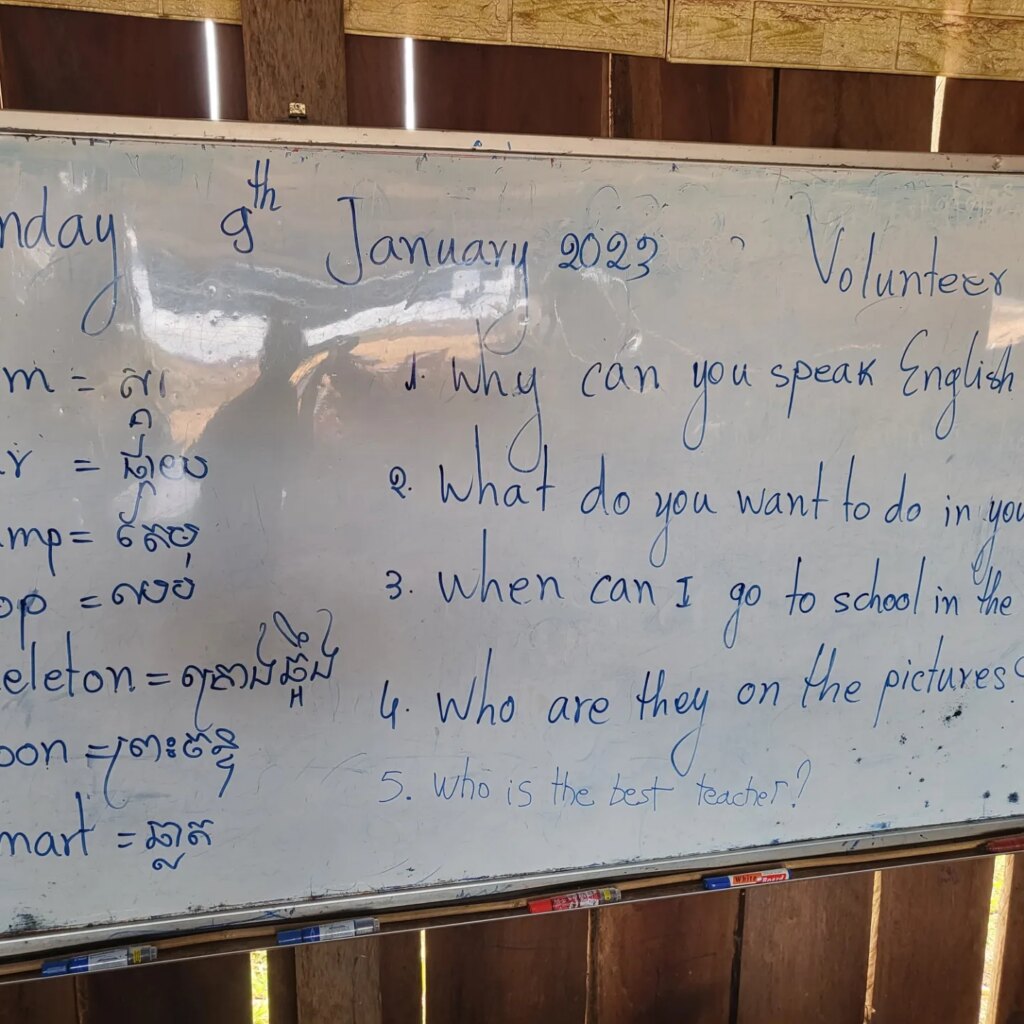 nday 9th January 2023 Volunteer
m =
r = ផ្កាយ
mp = តែម
op = ឈប់
eleton = គ្រោងឆ្អឹង
oon = ព្រះច័ន្ទ
mart = ឆ្លាត
1. Why can you speak English
2. What do you want to do in you
3. When can I go to school in the
4. Who are they on the pictures?
5. Who is the best teacher?
White Board